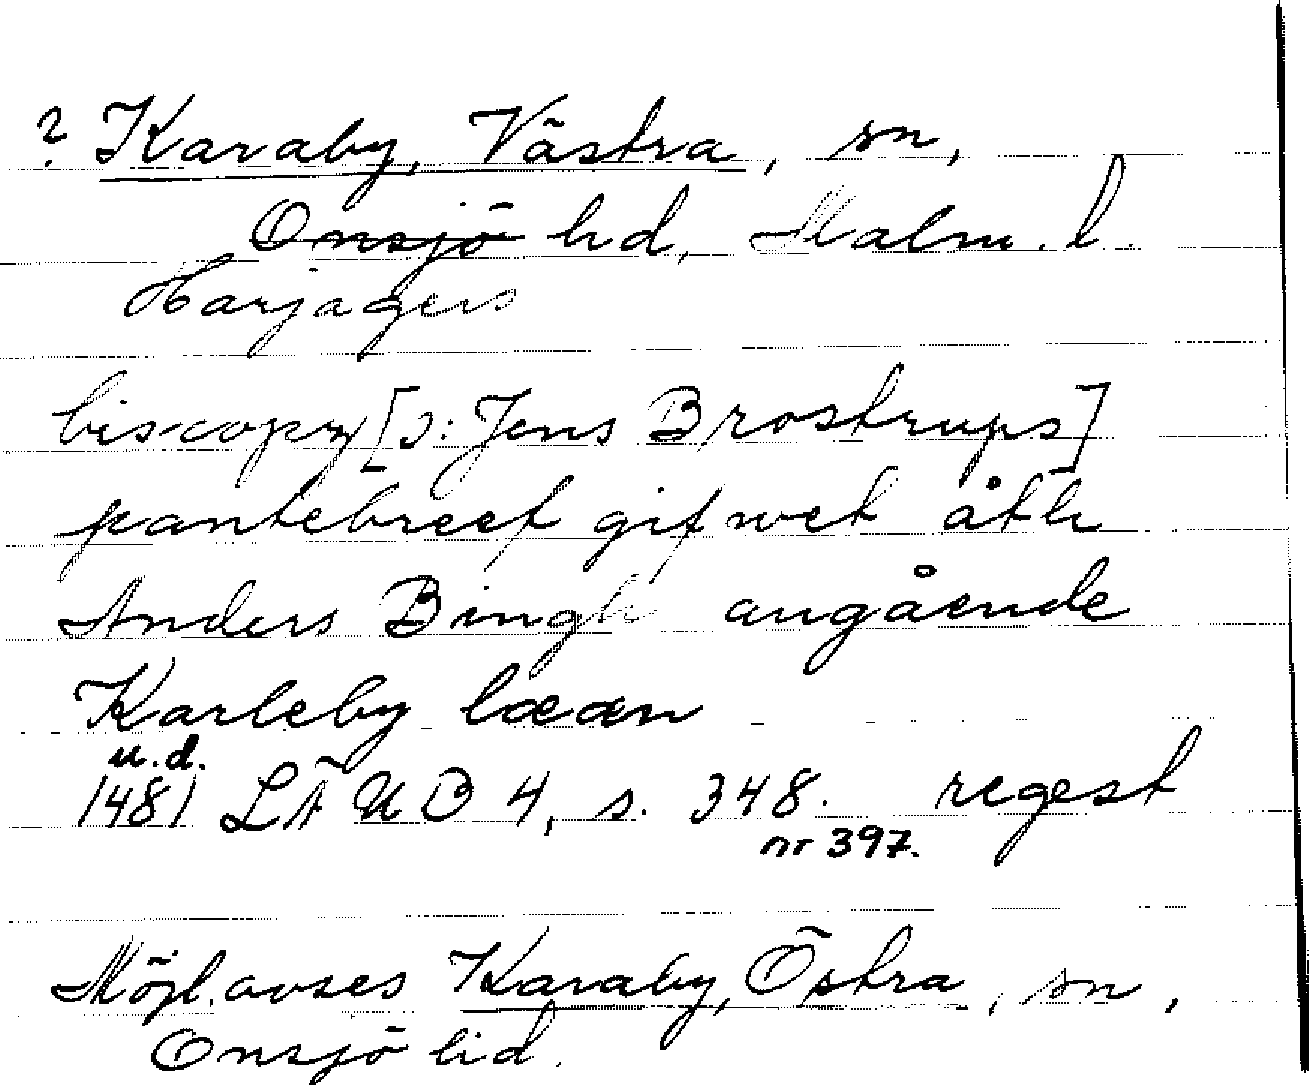 ? Karaby, Västra, sn,
Onsjö hd, Malm. l.
Harjagers
biscopz [ɔ: Jens Brostrups]
pantebreef gifwet åth
Anders Bingh angående
Karleby lææn
u.d.
1481 LÄUB 4, s. 348. regest
nr 397.
Möjl. avses Karaby, Östra, sn,
Onsjö hd.